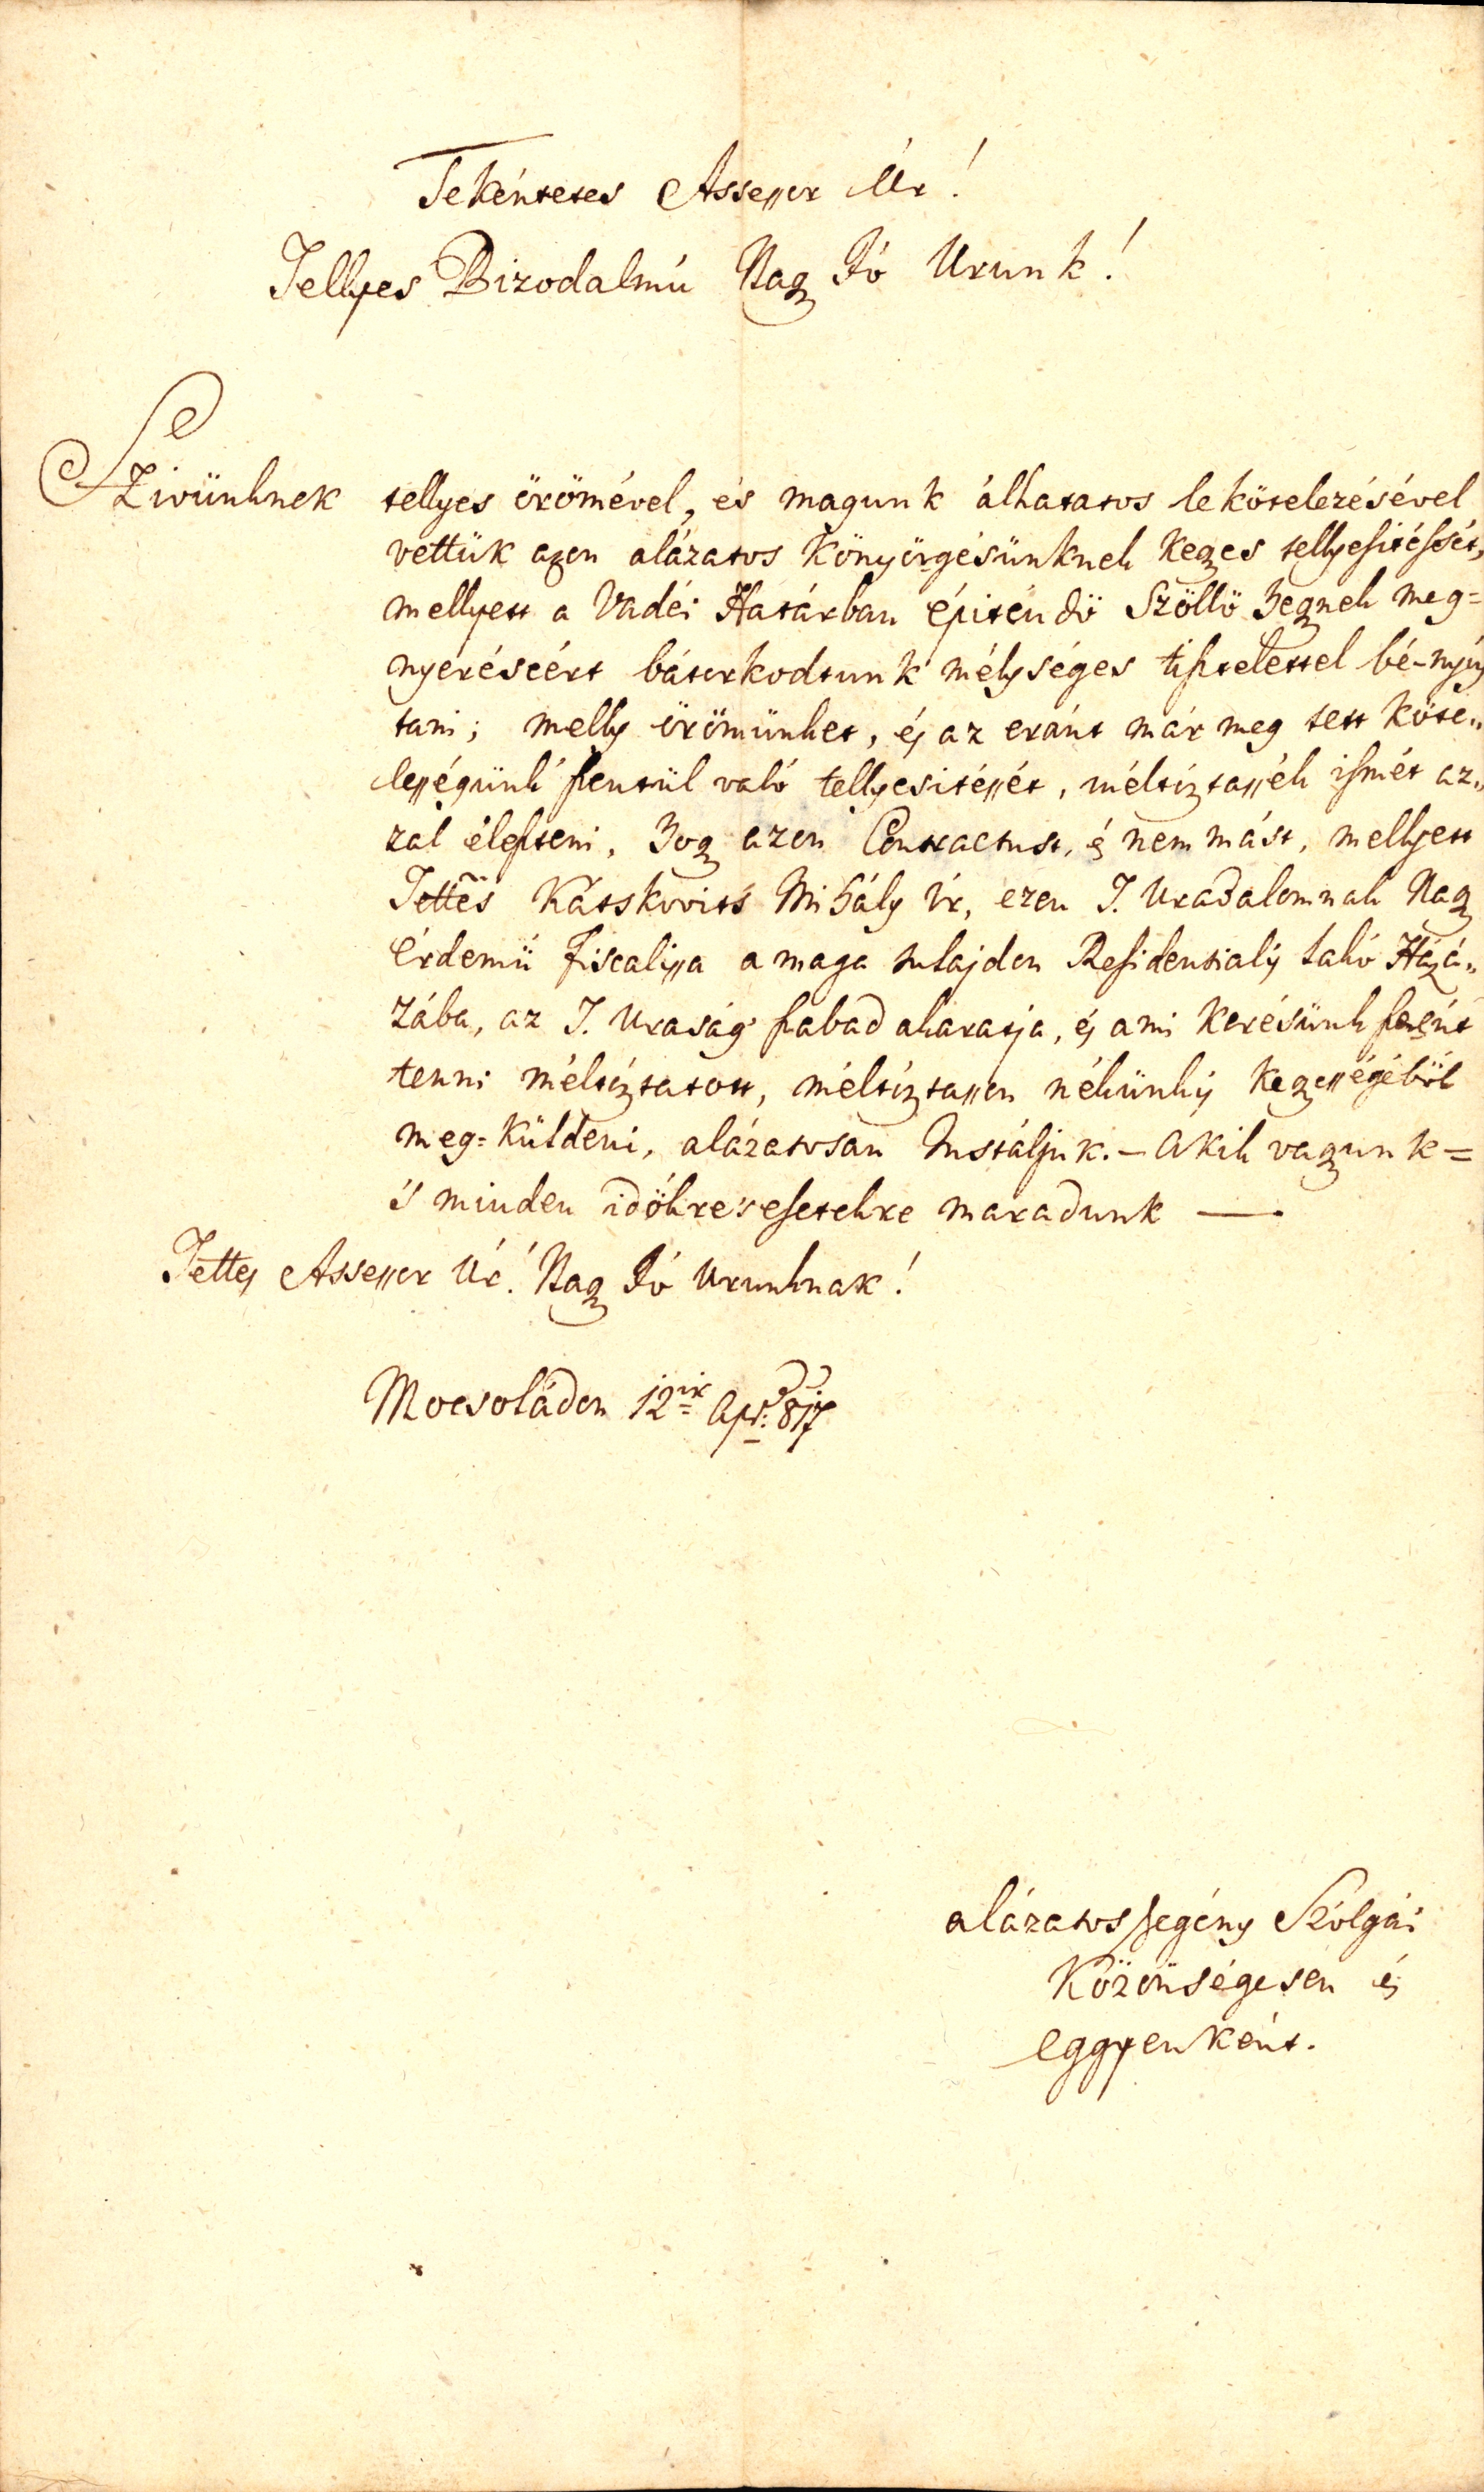 Tekéntetes Assessor Úr!
Tellyes Bizodalmú Nagy Jó Urunk!
Szivünknek tellyes örömével, és magunk álhatatos lekötelezésével
vettük azon alázatos Könyörgésünknek Kegyes tellyesitéssét,
mellyett a Vadéi Határban épiténdö Szöllö Hegynek meg=
nyeréseért bátorkodtunk mélységes tisztelettel bé-nyúj
tani; melly örömünket, és az eránt már meg tett Köte„
lességünk szentül való tellyesitéssét, méltóztassék ismét az„
zal éleszteni, Hogy azon Contractust, és nem mást, mellyett
Tettes Kátskovits Mihály Úr, ezen T. Uradalomnak Nagy
érdemü Fiscalissa a maga tulajdon Residentialis lakó Házá„
zába, az T. Uraság szabad akaratja, és a mi kerésünk szerént
tenni méltóztatott, méltóztasson nékünkis Kegyességéböl
meg=küldeni, alázatosan Instáljuk. – Akik vagyunk =
's minden idökre 's esetekre maradunk —
Tettes Assessor Úr! Nagy Jó Urunknak!
Mocsoládon 12ik Apr: 817
alázatos szegény Szólgái
Közönségesen és
eggyenként.